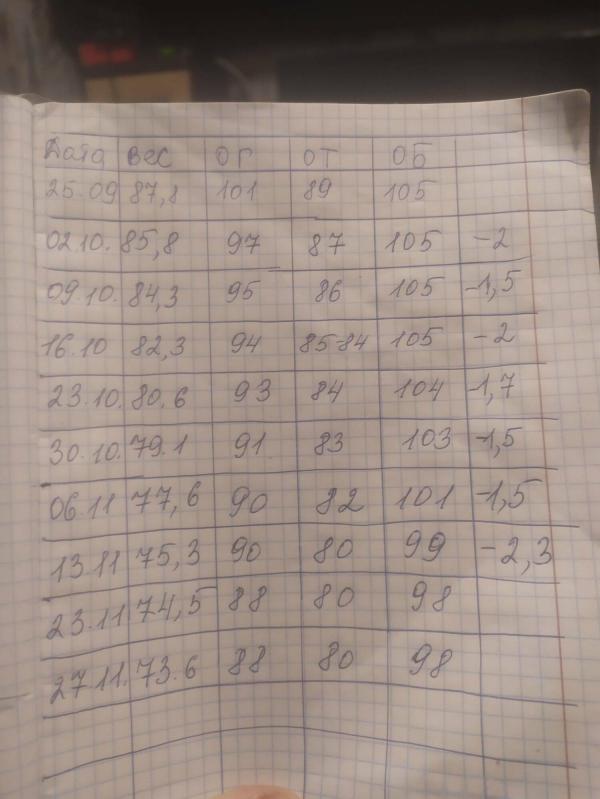 Дата вес ОГ ОТ ОБ
25.09 87,8 101 89 105
02.10. 85,8 97 87 105 -2
09.10. 84,3 95 86 105 -1,5
16.10 82,3 94 85-84 105 -2
23.10. 80.6 93 84 104 -1,7
30.10. 79.1 91 83 103 -1,5
06.11 77,6 90 82 101 -1,5
13.11 75,3 90 80 99 -2,3
23.11 74,5 88 80 98
27.11. 73.6 88 80 98